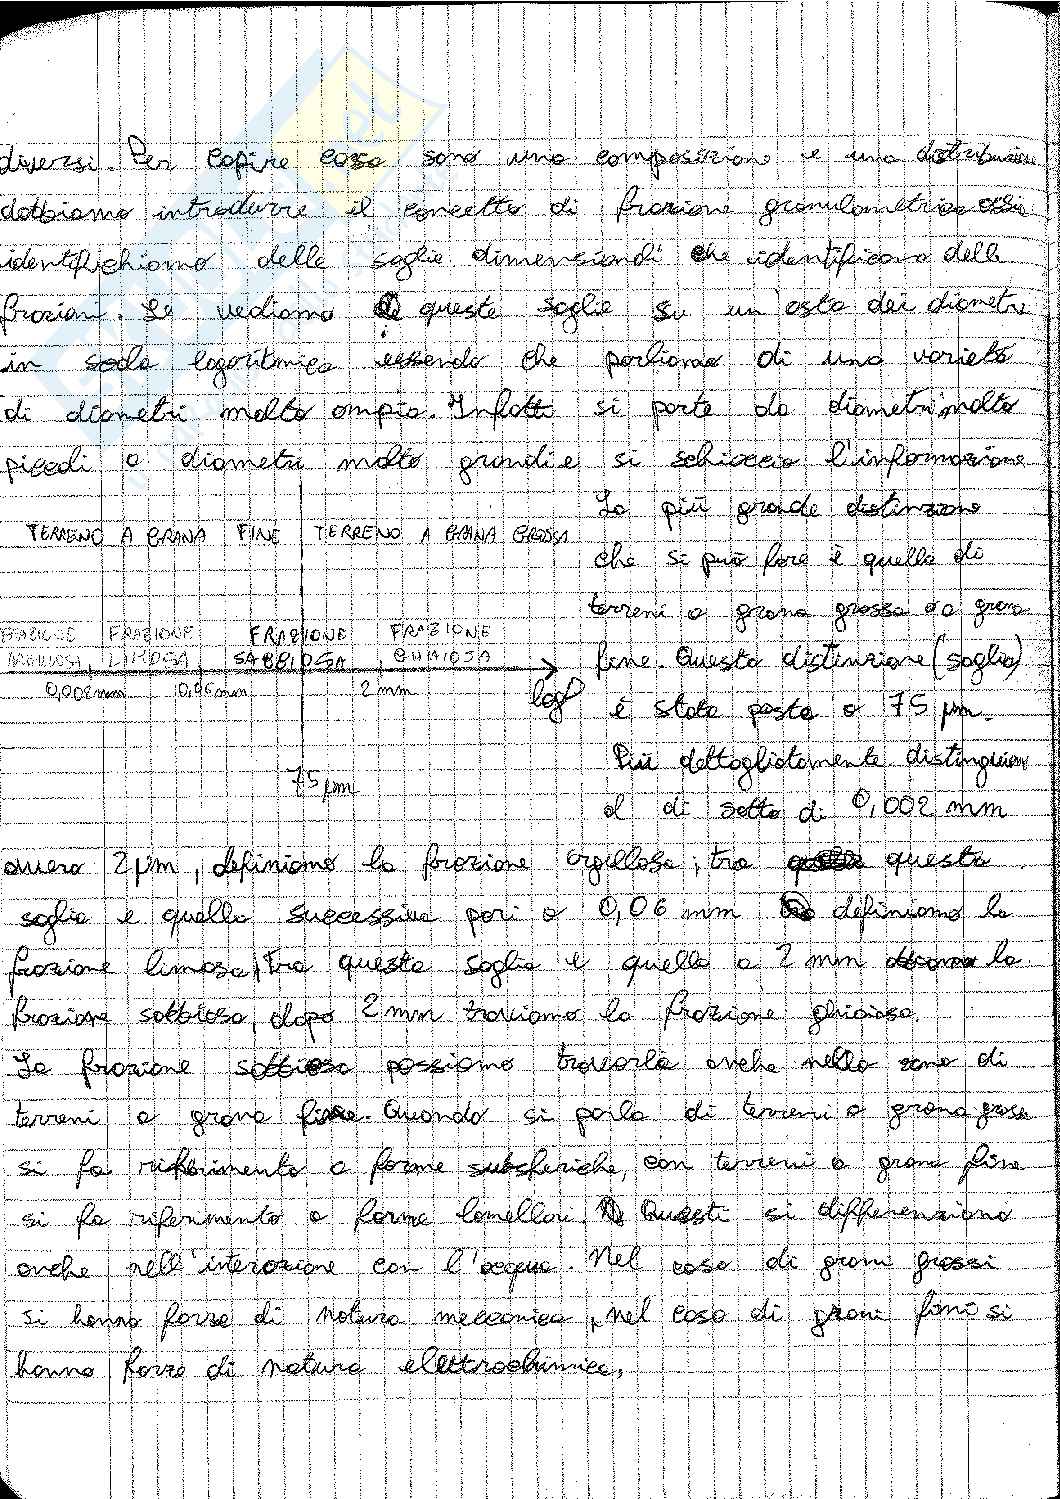 diversi. Per capire cosa sono una composizione e una distribuzione
dobbiamo introdurre il concetto di frazione granulometrica ossia
identifichiamo delle soglie dimensionali che identificano delle
frazioni. Se vediamo queste soglie su un asta dei diametri
in scala logaritmica essendo che parliamo di una varietà
di diametri molto ampia. Infatti si parte da diametri molto
piccoli a diametri molto grandi e si schiaccia l'informazione
La più grande distinzione
che si può fare è quella di
terreni a grana grossa o a grana
fine. Questa distinzione (soglia)
è stata posta a 75 μm.
Più dettagliatamente distinguiamo
al di sotto di 0,002 mm
TERRENO A GRANA FINE TERRENO A GRANA GROSSA
FRAZIONE FRAZIONE FRAZIONE
LIMOSA SABBIOSA GHIAIOSA
0,002mm 0,06mm 2mm
logD
75 μm
ovvero 2μm, definiamo la frazione argillosa, tra questa
soglia e quella successiva pari a 0,06 mm definiamo la
frazione limosa, tra questa soglia e quella a 2 mm la
frazione sabbiosa, dopo 2mm troviamo la frazione ghiaiosa.
La frazione sabbiosa possiamo trovarla anche nella zona di
terreni a grana fine. Quando si parla di terreni a grana grossa
si fa riferimento a forme subsferiche, con terreni a grana fine
si fa riferimento a forme lamellari. Questi si differenziano
anche nell'interazione con l'acqua. Nel caso di grani grossi
si hanno forze di natura meccanica, nel caso di grani fini si
hanno forze di natura elettrochimica.